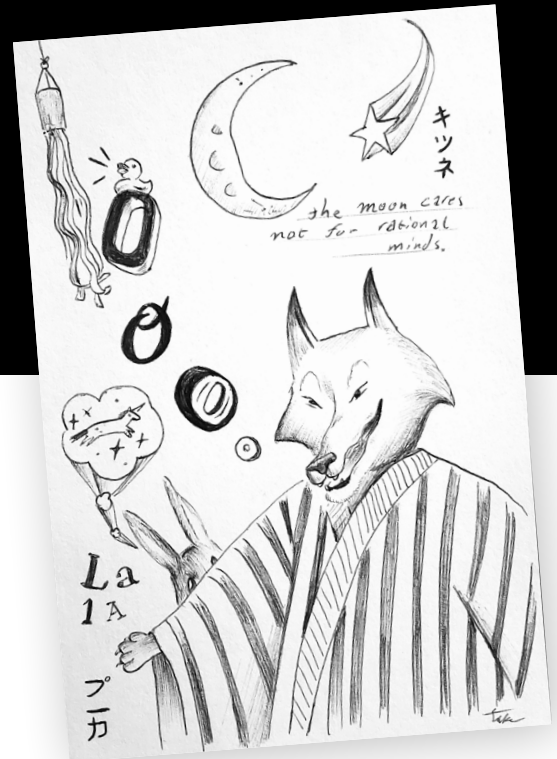 キツネ
the moon cares
not for rational
minds.
La
lA
プーカ